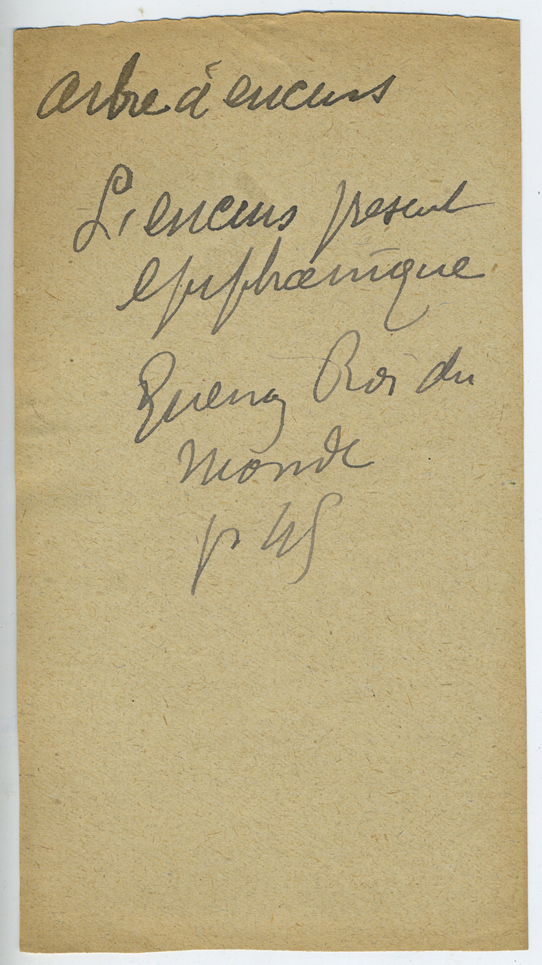 arbre d'encens
L'encens présent
épiphanique
Guenon Roi du
Monde
p 45